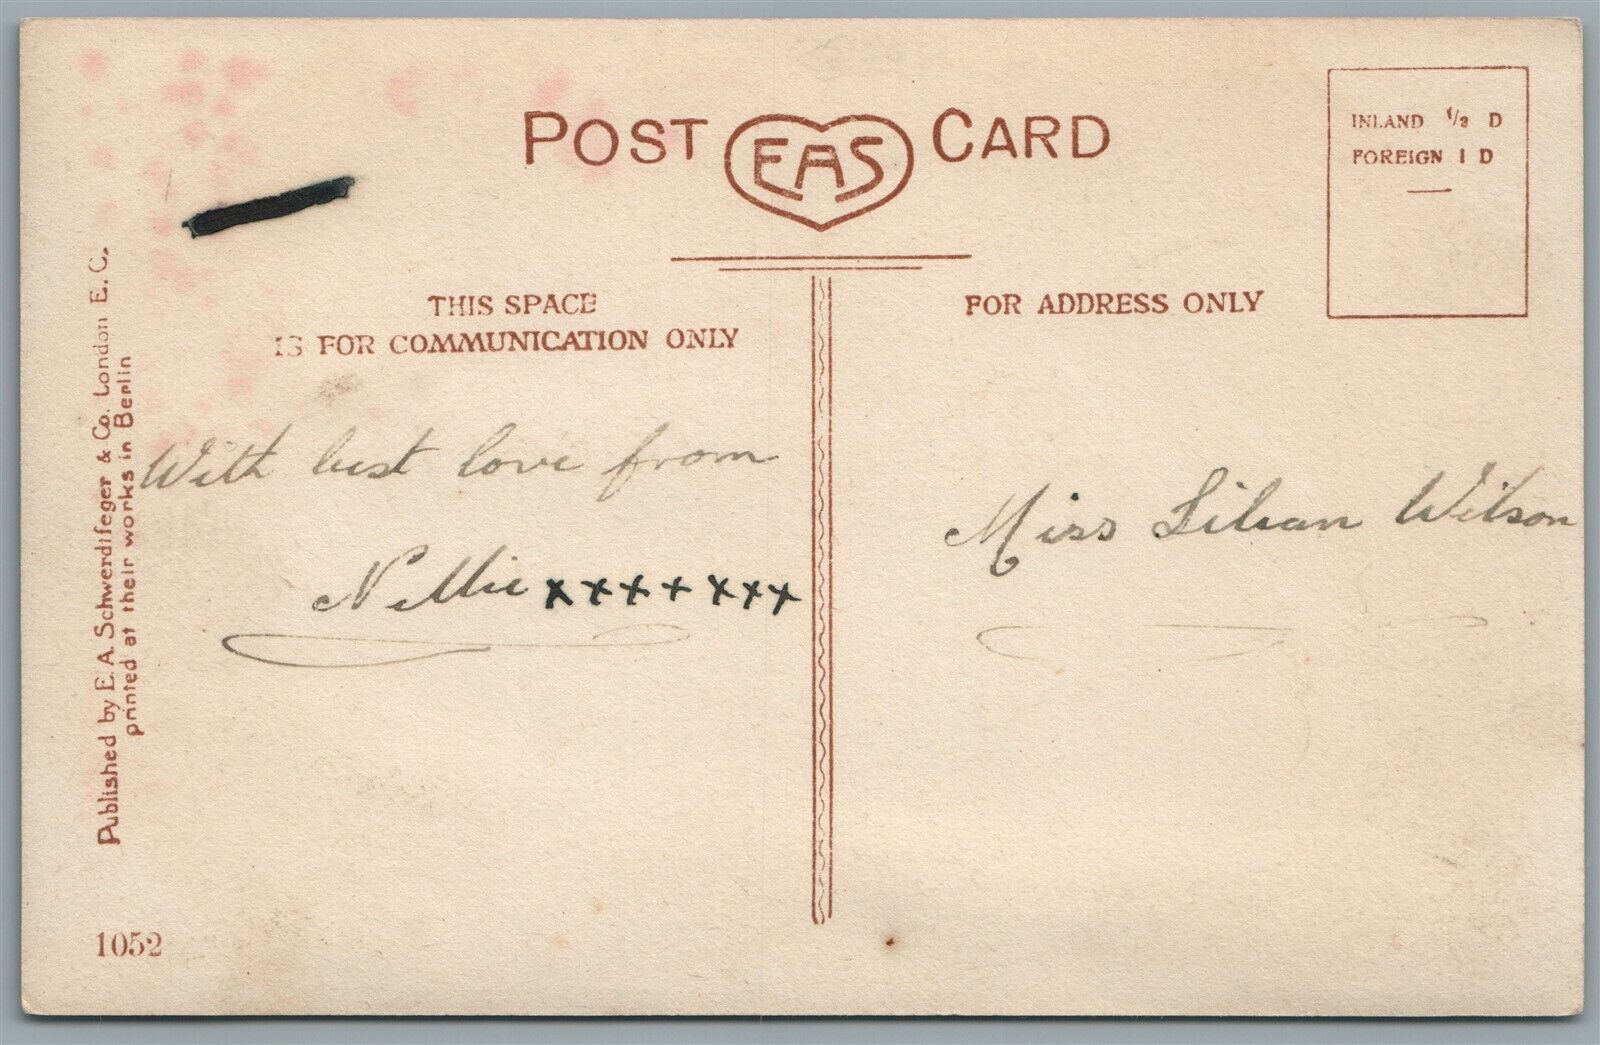 POST EAS CARD
INLAND ½ D
FOREIGN 1 D
THIS SPACE
IS FOR COMMUNICATION ONLY
FOR ADDRESS ONLY
With best love from
Nellie xxxx xxx
Miss Lilian Wilson
Published by E. A. Schwerdtfeger & Co. London E. C.
printed at their works in Berlin
1052